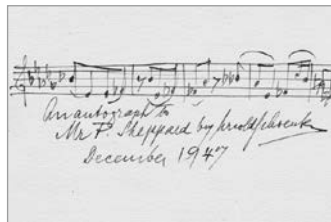 An autograph to
Mr P. Sheppard by Arnold Schoenberg
December 1947